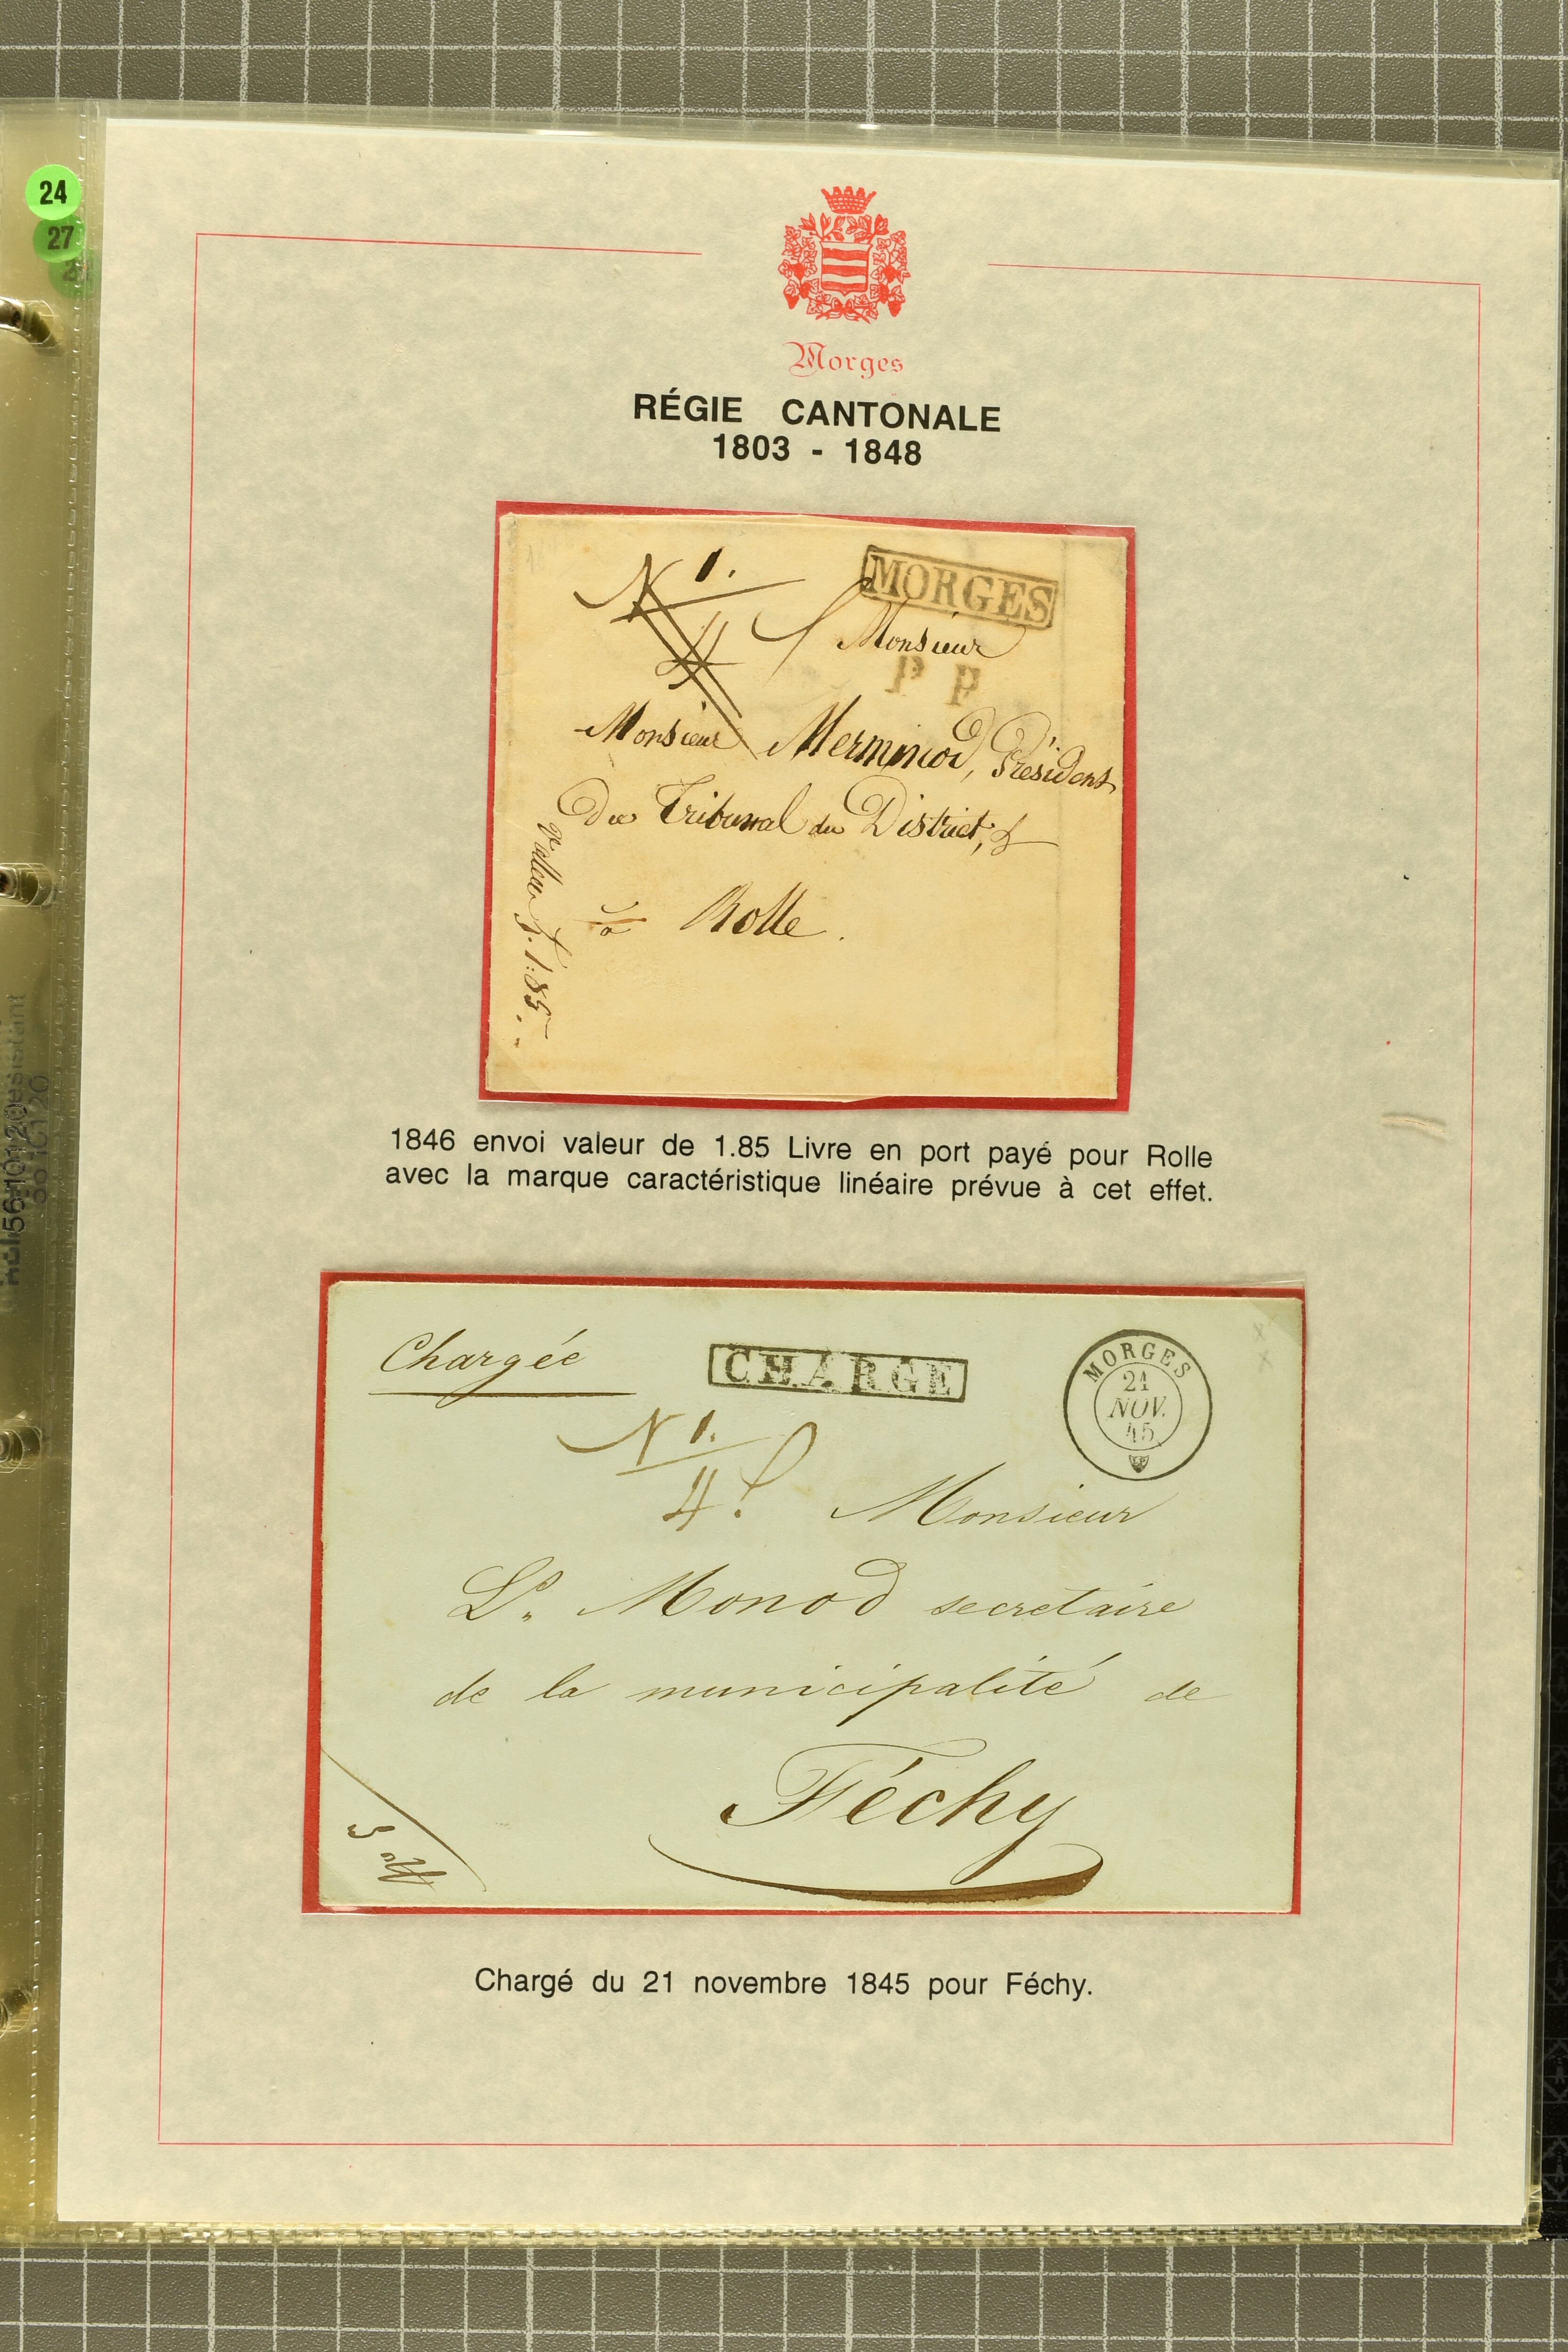 24
27
Morges
RÉGIE CANTONALE
1803 - 1848
N 1.
4
MORGES
Monsieur
P P
Monsieur Merminod, Président
Du Tribunal du District,
à Rolle.
1:85
1846 envoi valeur de 1.85 Livre en port payé pour Rolle
avec la marque caractéristique linéaire prévue à cet effet.
Chargée
CHARGÉ
MORGES
21
NOV.
45
N 1.
4
Monsieur
Ls. Monod secretaire
de la municipalité de
Féchy
Chargé du 21 novembre 1845 pour Féchy.